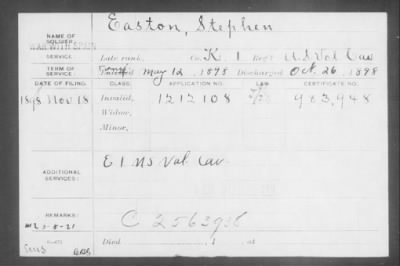 Easton, Stephen
NAME OF SOLDIER:
WAR WITH SPAIN
SERVICE: Late rank, Co. K. 1 Reg't U.S. Vol Cav
TERM OF SERVICE: Enrolled May 12, 1898 Discharged Oct. 26, 1898
DATE OF FILING. CLASS. APPLICATION NO. LAW. CERTIFICATE NO.
1898 Nov 18 Invalid, 1212108 983,948
Widow,
Minor,
ADDITIONAL SERVICES: E 1 US Vol Cav
REMARKS: C 2563938
Died , 1 , at